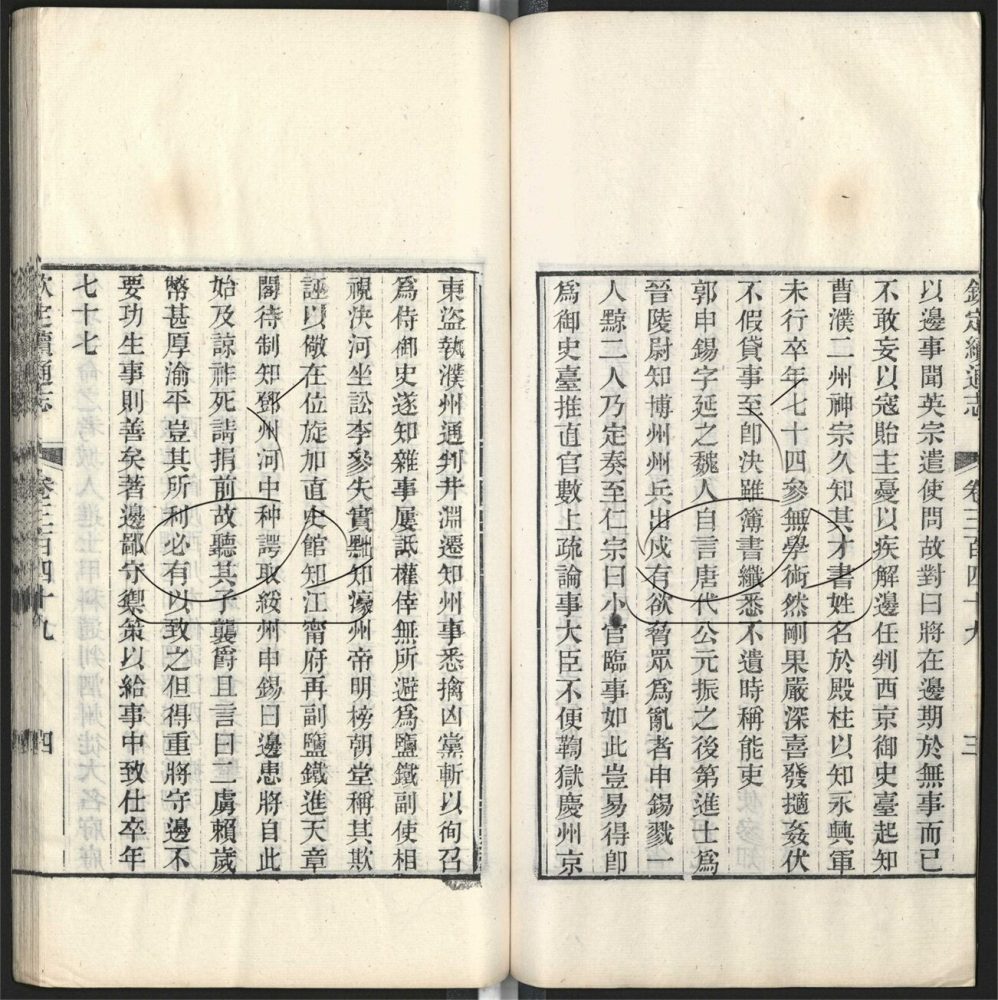 欽定續通志 卷三百四十九 三
以邊事聞英宗遣使問故對曰將在邊期於無事而已
不敢妄以寇貽主憂以疾解邊任判西京御史臺起知
曹濮二州神宗久知其才書姓名於殿柱以知永興軍
未行卒年七十四參無學術然剛果嚴深喜發擿姦伏
不假貸事至卽決雖簿書纖悉不遺時稱能吏
郭申錫字延之魏人自言唐代公元振之後第進士爲
晉陵尉知博州州兵出戍有欲脅眾爲亂者申錫戮一
人黥二人乃定奏至仁宗曰小官臨事如此豈易得卽
爲御史臺推直官數上疏論事大臣不便鞫獄慶州京
東盜執濮州通判井淵遷知州事悉擒凶黨斬以徇召
爲侍御史遂知雜事屢詆權倖無所避爲鹽鐵副使相
視決河坐訟李參失實黜知濠州帝明榜朝堂稱其欺
誣以儆在位旋加直史館知江甯府再副鹽鐵進天章
閣待制知鄧州河中种諤取綏州申錫曰邊患將自此
始及諒祚死請捐前故聽其子襲爵且言曰二虜賴歲
幣甚厚渝平豈其所利必有以致之但得重將守邊不
要功生事則善矣著邊鄙守禦策以給事中致仕卒年
七十七
欽定續通志 卷三百四十九 四